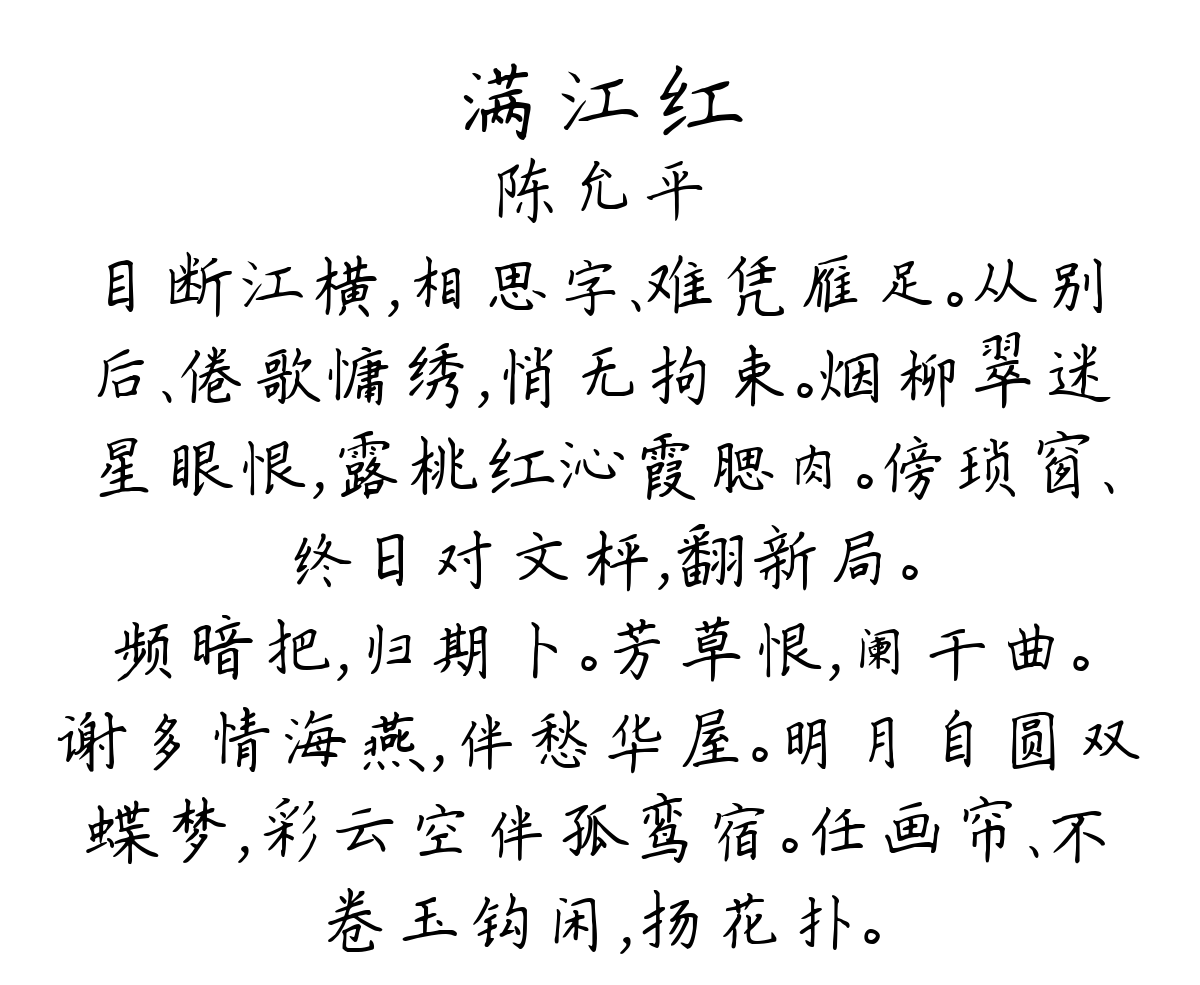 满江红
陈允平
目断江横,相思字、难凭雁足。从别
后、倦歌慵绣,悄无拘束。烟柳翠迷
星眼恨,露桃红沁霞腮肉。傍琐窗、
终日对文枰,翻新局。
频暗把,归期卜。芳草恨,阑干曲。
谢多情海燕,伴愁华屋。明月自圆双
蝶梦,彩云空伴孤鸾宿。任画帘、不
卷玉钩闲,扬花扑。